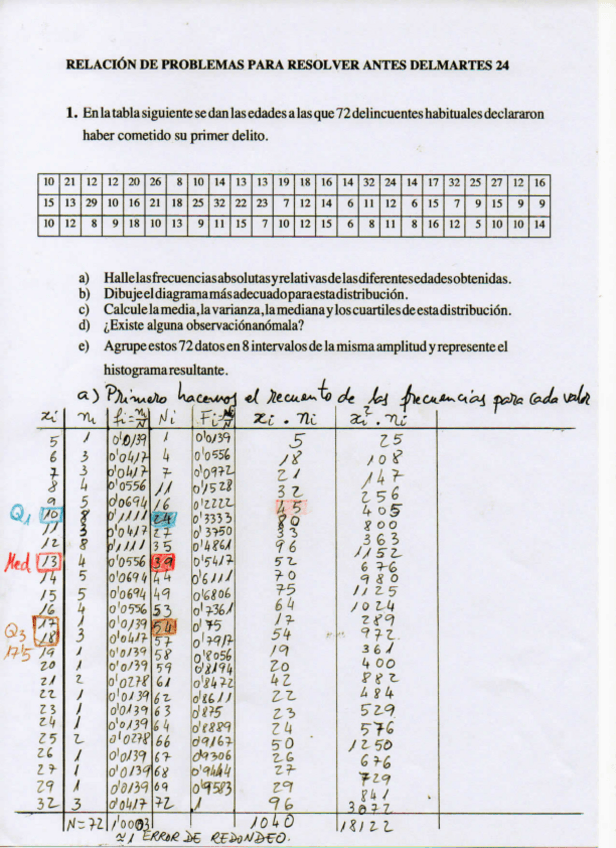 RELACIÓN DE PROBLEMAS PARA RESOLVER ANTES DELMARTES 24
1. En la tabla siguiente se dan las edades a las que 72 delincuentes habituales declararon
haber cometido su primer delito.
10 21 12 12 20 26 8 10 14 13 13 19 18 16 14 32 24 14 17 32 25 27 12 16
15 13 29 10 16 21 18 25 32 22 23 7 12 14 6 11 12 6 15 7 9 15 9 9
10 12 8 9 18 10 13 9 11 15 7 10 12 15 6 8 11 8 16 12 5 10 10 14
a) Halle las frecuencias absolutas y relativas de las diferentes edades obtenidas.
b) Dibuje el diagrama más adecuado para esta distribución.
c) Calcule la media, la varianza, la mediana y los cuartiles de esta distribución.
d) ¿Existe alguna observación anómala?
e) Agrupe estos 72 datos en 8 intervalos de la misma amplitud y represente el
histograma resultante.
a) Primero hacemos el recuento de las frecuencias para cada valor
xi ni fi=ni/N Ni Fi=Ni/N xi . ni xi² . ni
5 1 0'0139 1 0'0139 5 25
6 3 0'0417 4 0'0556 18 108
7 3 0'0417 7 0'0972 21 147
8 4 0'0556 11 0'1528 32 256
9 5 0'0694 16 0'2222 45 405
Q1 10 8 0'1111 24 0'3333 80 800
11 3 0'0417 27 0'3750 33 363
12 8 0'1111 35 0'4861 96 1152
Med 13 4 0'0556 39 0'5417 52 676
14 5 0'0694 44 0'6111 70 980
15 5 0'0694 49 0'6806 75 1125
16 4 0'0556 53 0'7361 64 1024
17 1 0'0139 54 0'75 17 289
Q3 18 3 0'0417 57 0'7917 54 972
17'5 19 1 0'0139 58 0'8056 19 361
20 1 0'0139 59 0'8194 20 400
21 2 0'0278 61 0'8472 42 882
22 1 0'0139 62 0'8611 22 484
23 1 0'0139 63 0'875 23 529
24 1 0'0139 64 0'8889 24 576
25 2 0'0278 66 0'9167 50 1250
26 1 0'0139 67 0'9306 26 676
27 1 0'0139 68 0'9444 27 729
29 1 0'0139 69 0'9583 29 841
32 3 0'0417 72 1 96 3072
N=72 1'0003 1040 18122
≈1 ERROR DE REDONDEO.